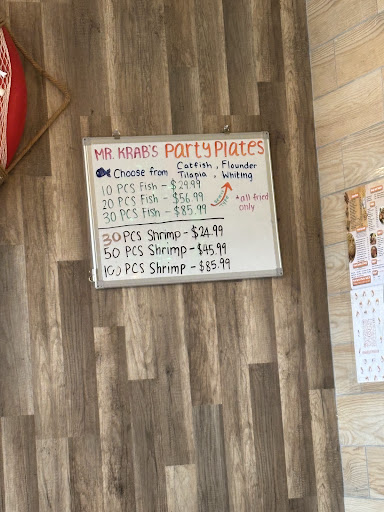 MR. KRAB'S Party Plates
Choose from Catfish, Flounder
Tilapia, Whiting
10 PCS Fish - $29.99
20 PCS Fish - $56.99
30 PCS Fish - $85.99
*all fried
only
30 PCS Shrimp - $24.99
50 PCS Shrimp - $45.99
100 PCS Shrimp - $85.99